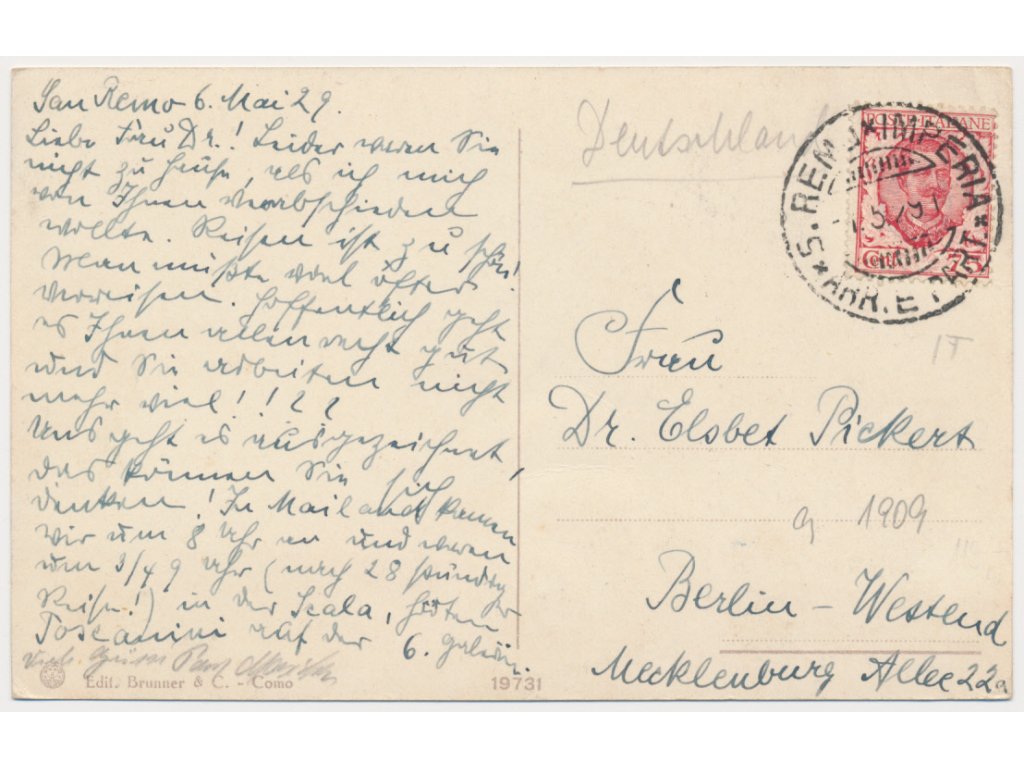 San Remo 6. Mai 29.
Liebe Frau Dr.! Leider waren Sie
nicht zu Hause, als ich mich
von Ihnen verabschieden
wollte. Reisen ist zu schön!
Man müßte viel öfters
verreisen. Hoffentlich geht
es Ihnen allen recht gut
und Sie arbeiten nicht
mehr viel!!??
Uns geht es ausgezeichnet,
das können Sie sich
denken! In Mailand kamen
wir um 8 Uhr an und waren
um 3/4 9 Uhr (nach 28 stündiger
Reise!) in der Scala, hörten
Toscanini auf der 6. Galerie.
Edit. Brunner & C. - Como
19731
Deutschland
POSTE ITALIANE
S. REMO * IMPERIA * ARR. E PART.
Frau
Dr. Elsbet Pickert
9 1909
Berlin - Westend
Mecklenburg Allee 22a